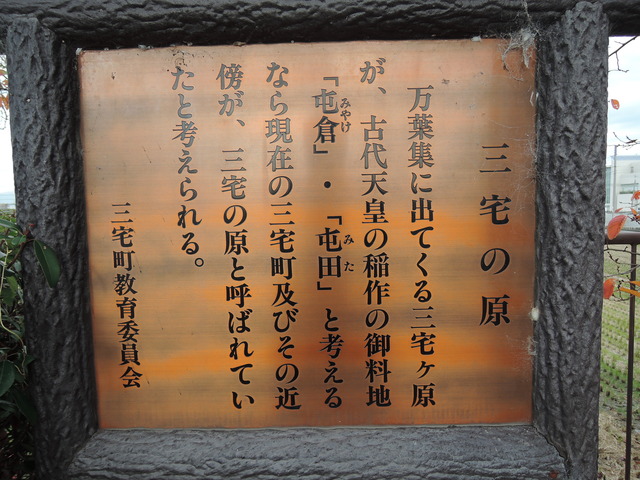 三宅の原
万葉集に出てくる三宅ヶ原
が、古代天皇の稲作の御料地
「屯倉」・「屯田」と考える
みやけ
みた
なら現在の三宅町及びその近
傍が、三宅の原と呼ばれてい
たと考えられる。
三宅町教育委員会